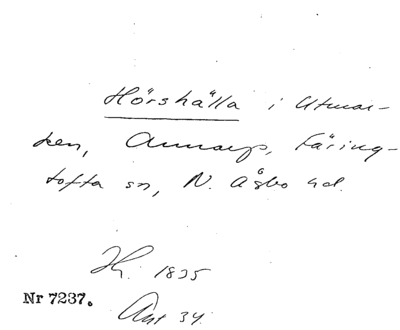 Hörshälla i Utmar-
ken, Annarp, Färing-
tofta sn, N. Åsbo hd.
Hr. 1835
Nr 7237.
Ant 34.